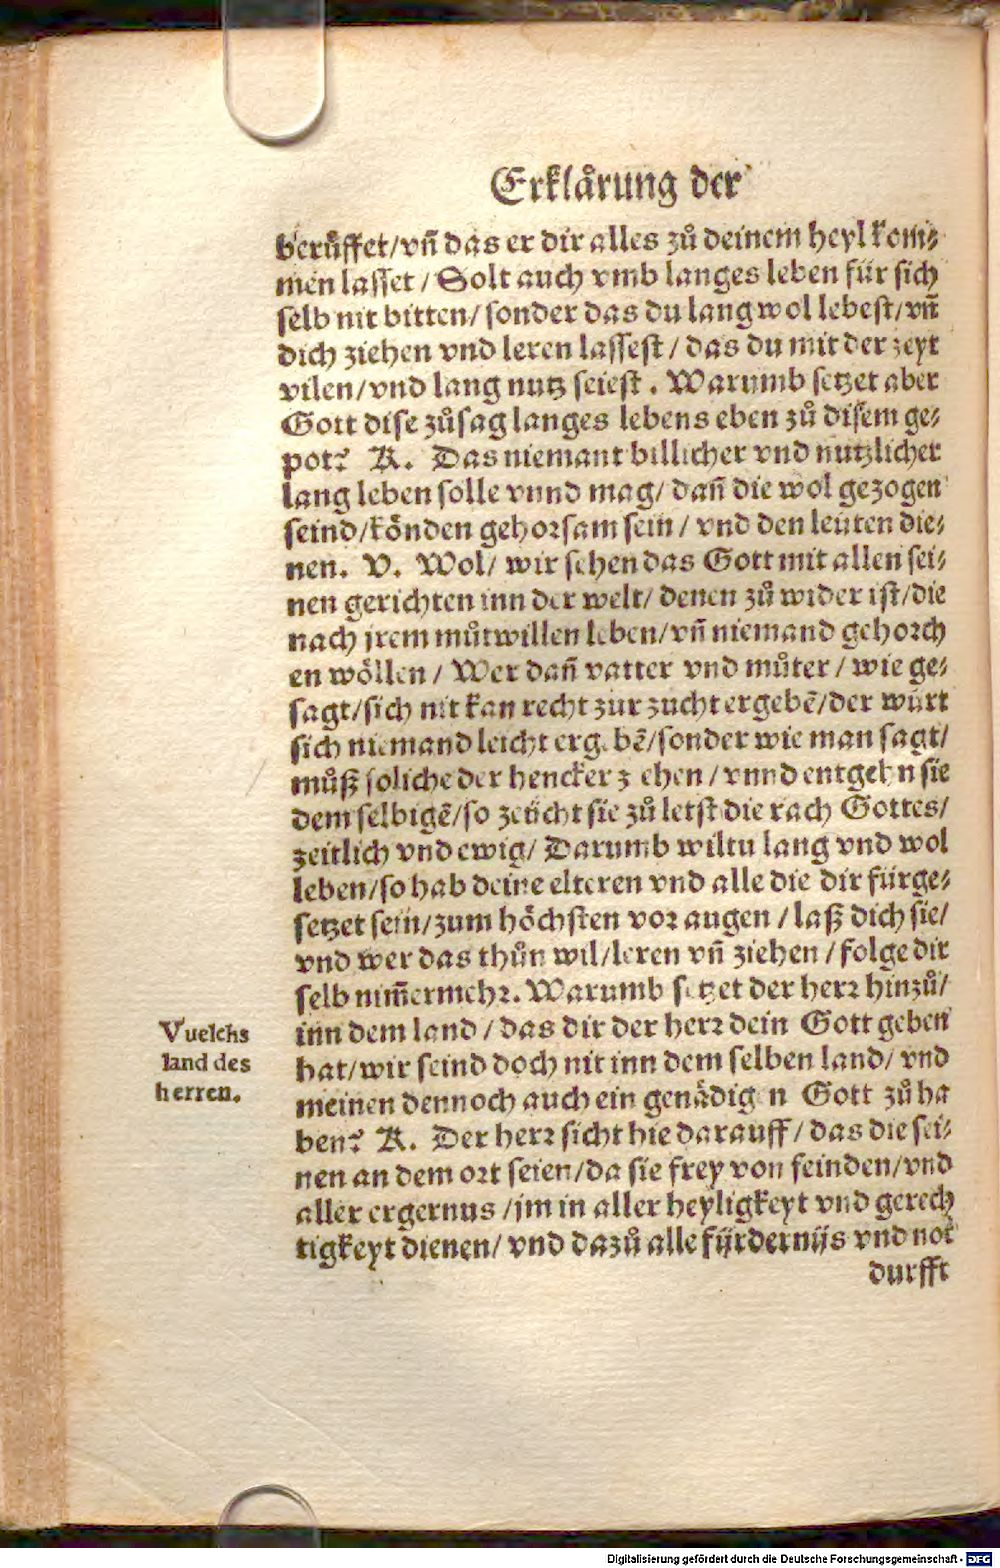 Erklårung der
berůffet/vñ das er dir alles zů deinem heyl kom⸗
men lasset / Solt auch vmb langes leben für sich
selb nit bitten/ sonder das du lang wol lebest/vñ
dich ziehen vnd leren lassest / das du mit der zeyt
vilen/vnd lang nutz seiest. Warumb setzet aber
Gott dise zůsag langes lebens eben zů disem ge⸗
pot? A. Das niemant billicher vnd nutzlicher
lang leben solle vnnd mag/ dañ die wol gezogen
seind/kônden gehorsam sein / vnd den leuten die⸗
nen. V. Wol/ wir sehen das Gott mit allen sei⸗
nen gerichten inn der welt/ denen zů wider ist/die
nach jrem můtwillen leben/vñ niemand gehorch
en wôllen / Wer dañ vatter vnd můter / wie ge⸗
sagt/sich nit kan recht zur zucht ergebẽ/der würt
sich niemand leicht ergebẽ/sonder wie man sagt/
můß soliche der hencker ziehen / vnnd entgehn sie
dem selbigẽ/so zeücht sie zů letst die rach Gottes/
zeitlich vnd ewig/ Darumb wiltu lang vnd wol
leben/so hab deine elteren vnd alle die dir fürge⸗
setzet sein/zum hôchsten vor augen / laß dich sie/
vnd wer das thůn wil/leren vñ ziehen / folge dir
selb nim̃ermehr. Warumb setzet der herr hinzů/
Vuelchs
land des
herren.
inn dem land / das dir der herr dein Gott geben
hat/wir seind doch nit inn dem selben land/ vnd
meinen dennoch auch ein genådigen Gott zů ha
ben? A. Der herr sicht hie darauff / das die sei⸗
nen an dem ort seien/da sie frey von feinden/vnd
aller ergernus /jm in aller heyligkeyt vnd gerech
tigkeyt dienen/ vnd dazů alle fürdernüs vnd not
durfft
Digitalisierung gefördert durch die Deutsche Forschungsgemeinschaft - DFG